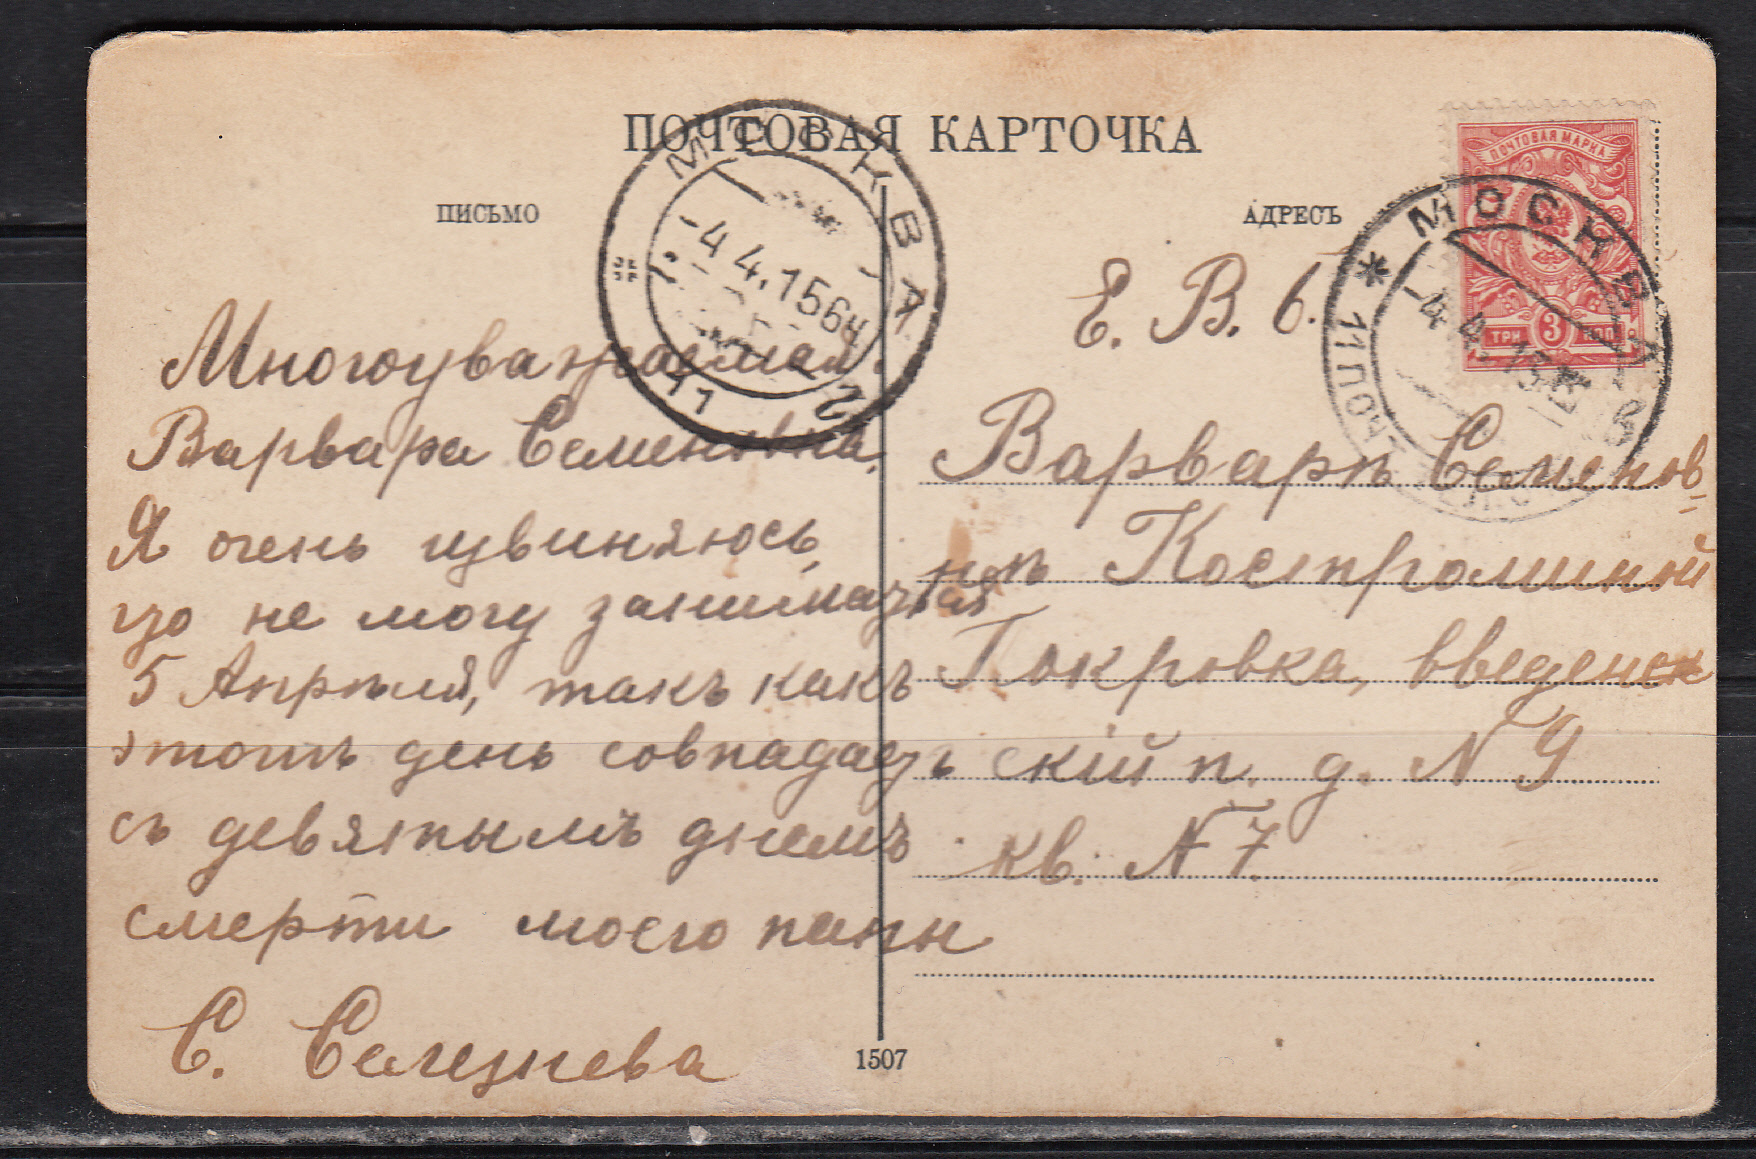 ПОЧТОВАЯ КАРТОЧКА
ПИСЬМО
Многоуважаемая
Варвара Семеновна,
Я очень извиняюсь,
что не могу заниматься
5 Апрѣля, такъ какъ
этотъ день совпадаетъ
съ девятымъ днемъ
смерти моего папы
С. Селезнева
АДРЕСЪ
Е. В. б.
Варварѣ Семенов-
нѣ Костроминой
Покровка, Введенск
скій п. д. N 9
кв. N 7.
1507
МОСКВА
-4.4.15 6Ч
2
ПОЧТОВАЯ МАРКА
ТРИ 3 КОП
МОСКВА
-4.4.15
11 ПОЧТ